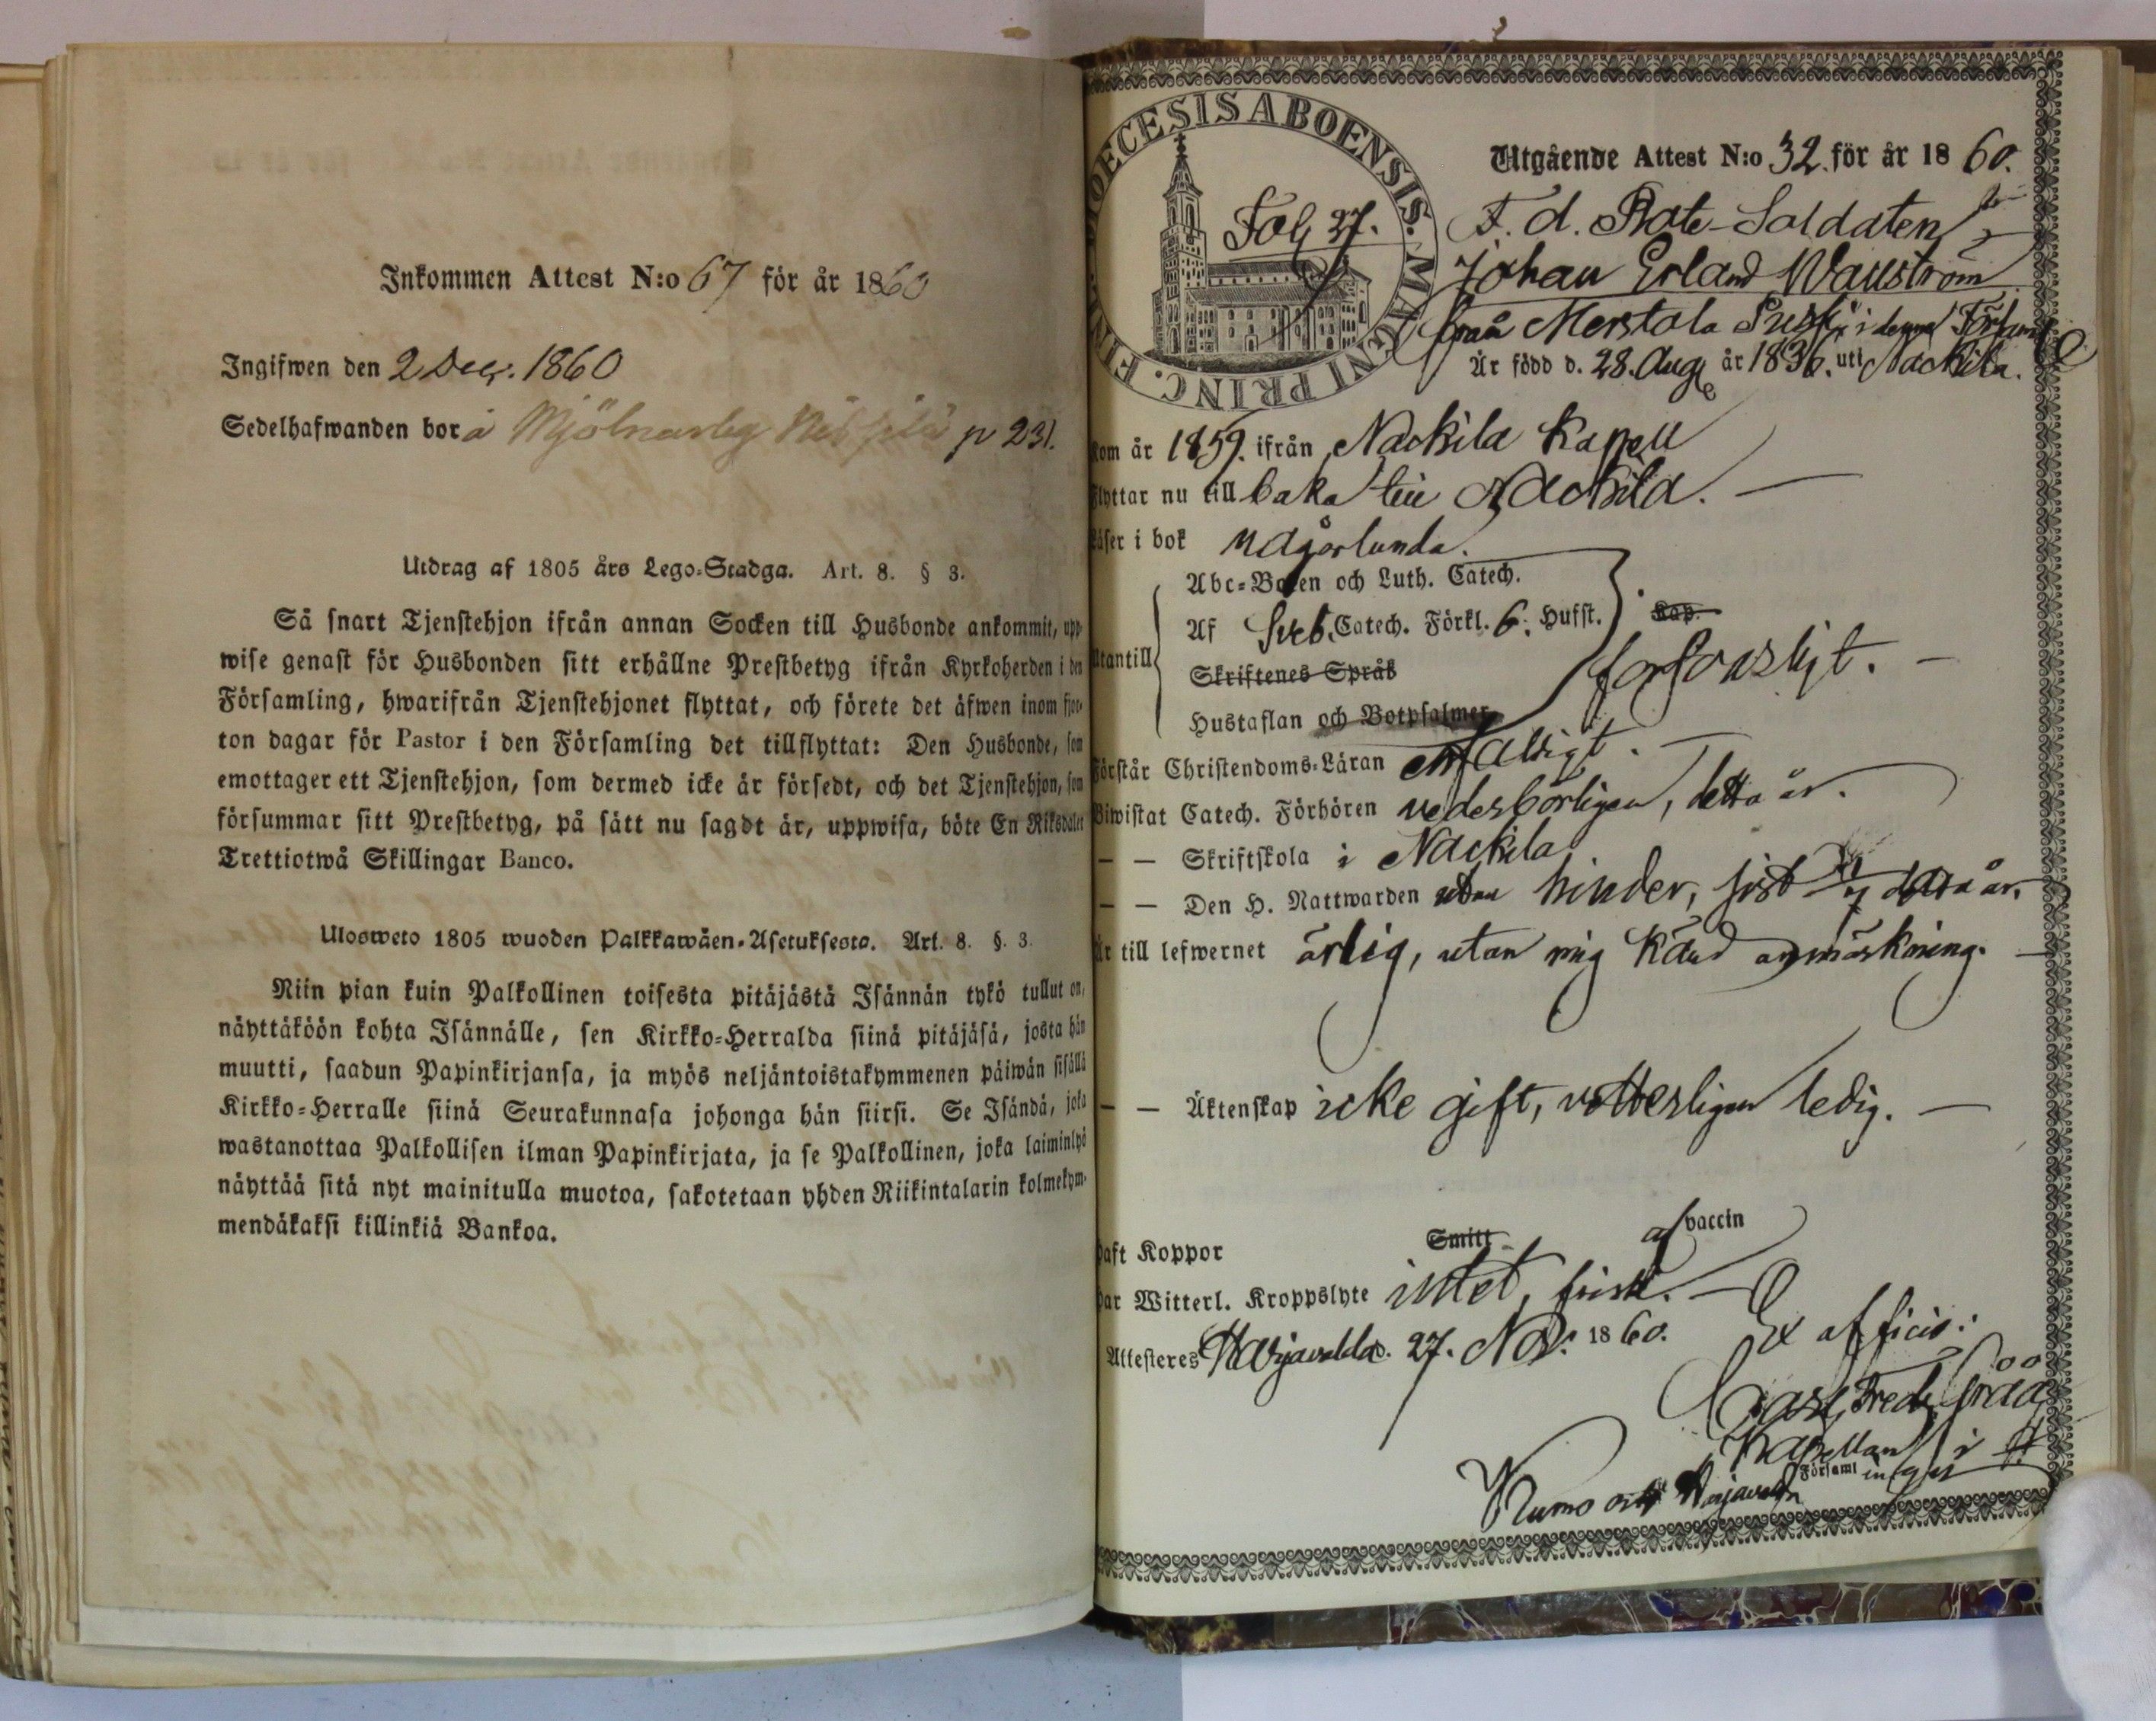 Inkommen Attest N:o 67 för år 1860
Ingifwen den 2 Decr. 1860
Sedelhafwanden bor å Mjölnarbg p 231.
Utdrag af 1805 års Lego-Stadga. Art. 8. § 3.
Så snart Tjenstehjon ifrån annan Socken till Husbonde ankommit, upp-
wise genast för Husbonden sitt erhållne Prestbetyg ifrån Kyrkoherden i den
Församling, hwarifrån Tjenstehjonet flyttat, och förete det äfwen inom fjor-
ton dagar för Pastor i den Församling det tillflyttat: Den Husbonde, som
emottager ett Tjenstehjon, som dermed icke är försedt, och det Tjenstehjon, som
försummar sitt Prestbetyg, på sätt nu sagdt är, uppwisa, böte En Riksdaler
Trettiotwå Skillingar Banco.
Ulosweto 1805 wuoden Palkkawäen-Asetuksesta. Art. 8. §. 3.
Niin pian kuin Palkollinen toisesta pitäjästä Isännän tykö tullut on,
näyttäköön kohta Isännälle, sen Kirkko-Herralda siinä pitäjäsä, josta hän
muutti, saadun Papinkirjansa, ja myös neljäntoistakymmenen päiwän sisällä
Kirkko-Herralle siinä Seurakunnasa johonga hän siirsi. Se Isändä, joka
wastanottaa Palkollisen ilman Papinkirjata, ja se Palkollinen, joka laiminlyö
näyttää sitä nyt mainitulla muotoa, sakotetaan yhden Riikintalarin kolmekym-
mendäkaksi killinkiä Bankoa.
DIOECESIS ABOENSIS. MAGNI PRINC. FINL.
Fol 27.
Utgående Attest N:o 32. för år 1860.
F. d. Rote-Soldaten
Johan Erland Wallström
från Merstola i denna Församl
Är född d. 28. Aug år 1836. uti Nackila.
Kom år 1859. ifrån Nackila Kapell
Flyttar nu till baka till Nackila.
Läser i bok någorlunda.
Abc-Boken och Luth. Catech.
Utantill Af Sveb. Catech. Förkl. 6. Hufst. Kap.
Skriftenes Språk försvarligt.
Hustaflan och Botpsalmer
Förstår Christendoms-Läran enfaldigt.
Biwistat Catech. Förhören vederbörligen, detta år.
— — Skriftskola i Nackila
— — Den H. Nattwarden utan hinder, sist detta år.
Är till lefwernet ärlig, utan mig känd anmärkning.
— — Äktenskap icke gift, vetterligen ledig.
Haft Koppor Smitt af vaccin
Har Witterl. Kroppslyte intet, frisk.
Attesteras Harjavalda d. 27. Nov. 1860. Ex officio:
Carl Fredr.
Kapellan i
Kumo och Harjavalda Församlingar